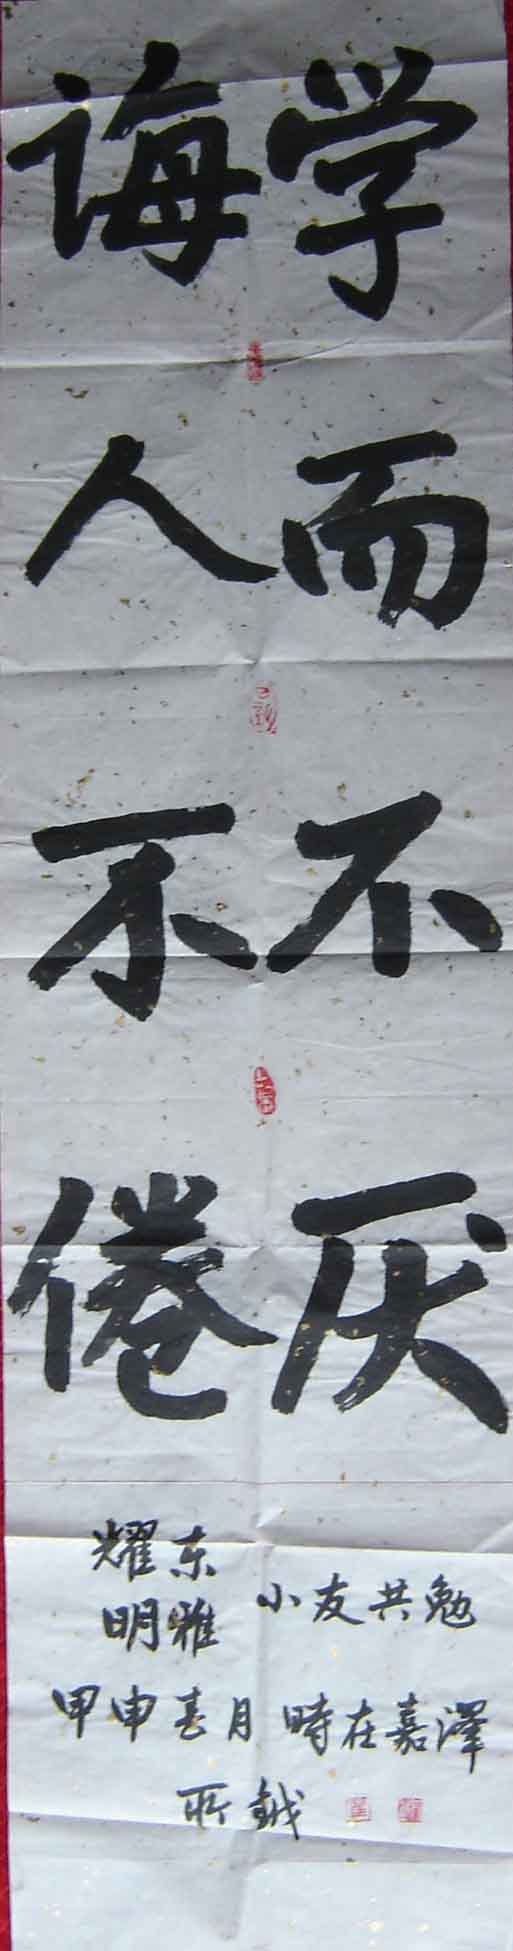 学而不厌
诲人不倦
耀东
明雅
小友共勉
甲申春月時在嘉澤